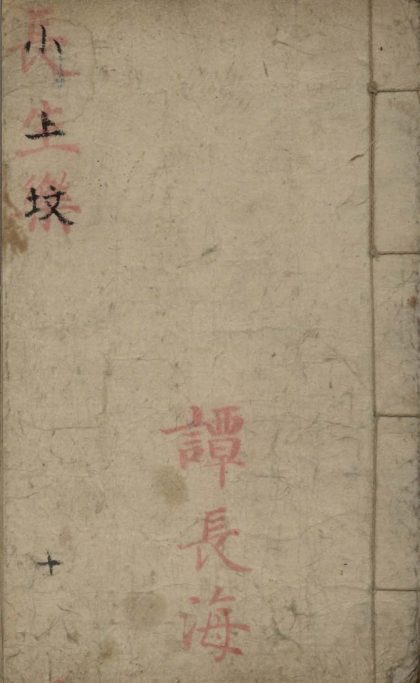 譚長海
長生樂
小上坟
十